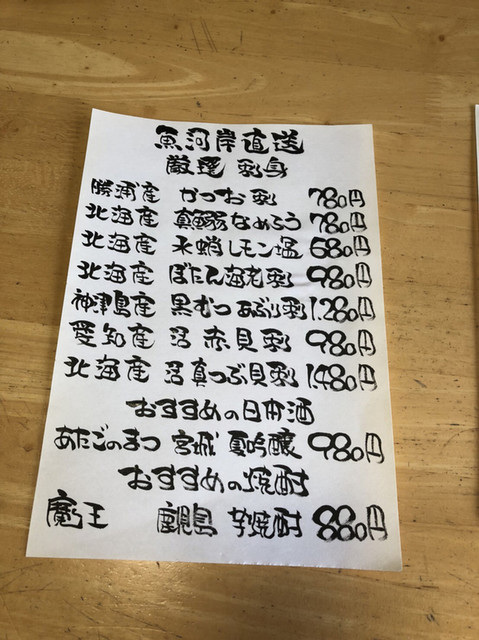 魚河岸直送
厳選 刺身
勝浦産 かつお刺 780円
北海産 真鰯なめろう 780円
北海産 水蛸レモン塩 680円
北海産 ぼたん海老刺 980円
神津島産 黒むつあぶり刺 1.280円
愛知産 活 赤貝刺 980円
北海産 活真つぶ貝刺 1.480円
おすすめの日本酒
あたごのまつ 宮城 夏吟醸 980円
おすすめの焼酎
魔王 鹿児島 芋焼酎 880円